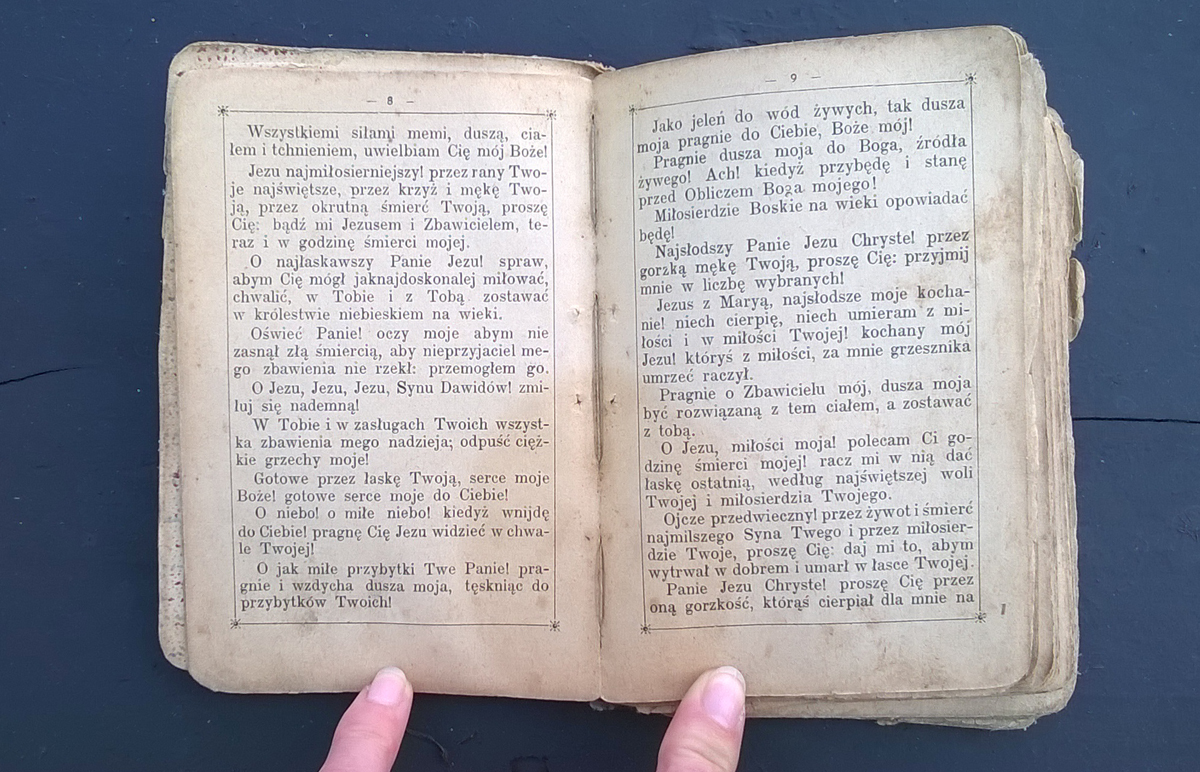 — 8 —
Wszystkiemi siłami memi, duszą, cia-
łem i tchnieniem, uwielbiam Cię mój Boże!
Jezu najmiłosierniejszy! przez rany Two-
je najświętsze, przez krzyż i mękę Two-
ją, przez okrutną śmierć Twoją, proszę
Cię: bądź mi Jezusem i Zbawicielem, te-
raz i w godzinę śmierci mojej.
O najłaskawszy Panie Jezu! spraw,
abym Cię mógł jaknajdoskonalej miłować,
chwalić, w Tobie i z Tobą zostawać
w królestwie niebieskiem na wieki.
Oświeć Panie! oczy moje abym nie
zasnął złą śmiercią, aby nieprzyjaciel me-
go zbawienia nie rzekł: przemogłem go.
O Jezu, Jezu, Jezu, Synu Dawidów! zmi-
łuj się nademną!
W Tobie i w zasługach Twoich wszyst-
ka zbawienia mego nadzieja; odpuść cięż-
kie grzechy moje!
Gotowe przez łaskę Twoją, serce moje
Boże! gotowe serce moje do Ciebie!
O niebo! o miłe niebo! kiedyż wnijdę
do Ciebie! pragnę Cię Jezu widzieć w chwa-
le Twojej!
O jak miłe przybytki Twe Panie! pra-
gnie i wzdycha dusza moja, tęskniąc do
przybytków Twoich!
— 9 —
Jako jeleń do wód żywych, tak dusza
moja pragnie do Ciebie, Boże mój!
Pragnie dusza moja do Boga, źródła
żywego! Ach! kiedyż przybędę i stanę
przed Obliczem Boga mojego!
Miłosierdzie Boskie na wieki opowiadać
będę!
Najsłodszy Panie Jezu Chryste! przez
gorzką mękę Twoją, proszę Cię: przyjmij
mnie w liczbę wybranych!
Jezus z Maryą, najsłodsze moje kocha-
nie! niech cierpię, niech umieram z mi-
łości i w miłości Twojej! kochany mój
Jezu! któryś z miłości, za mnie grzesznika
umrzeć raczył.
Pragnie o Zbawicielu mój, dusza moja
być rozwiązaną z tem ciałem, a zostawać
z tobą.
O Jezu, miłości moja! polecam Ci go-
dzinę śmierci mojej! racz mi w nią dać
łaskę ostatnią, według najświętszej woli
Twojej i miłosierdzia Twojego.
Ojcze przedwieczny! przez żywot i śmierć
najmilszego Syna Twego i przez miłosier-
dzie Twoje, proszę Cię: daj mi to, abym
wytrwał w dobrem i umarł w łasce Twojej.
Panie Jezu Chryste! proszę Cię przez
oną gorzkość, którąś cierpiał dla mnie na